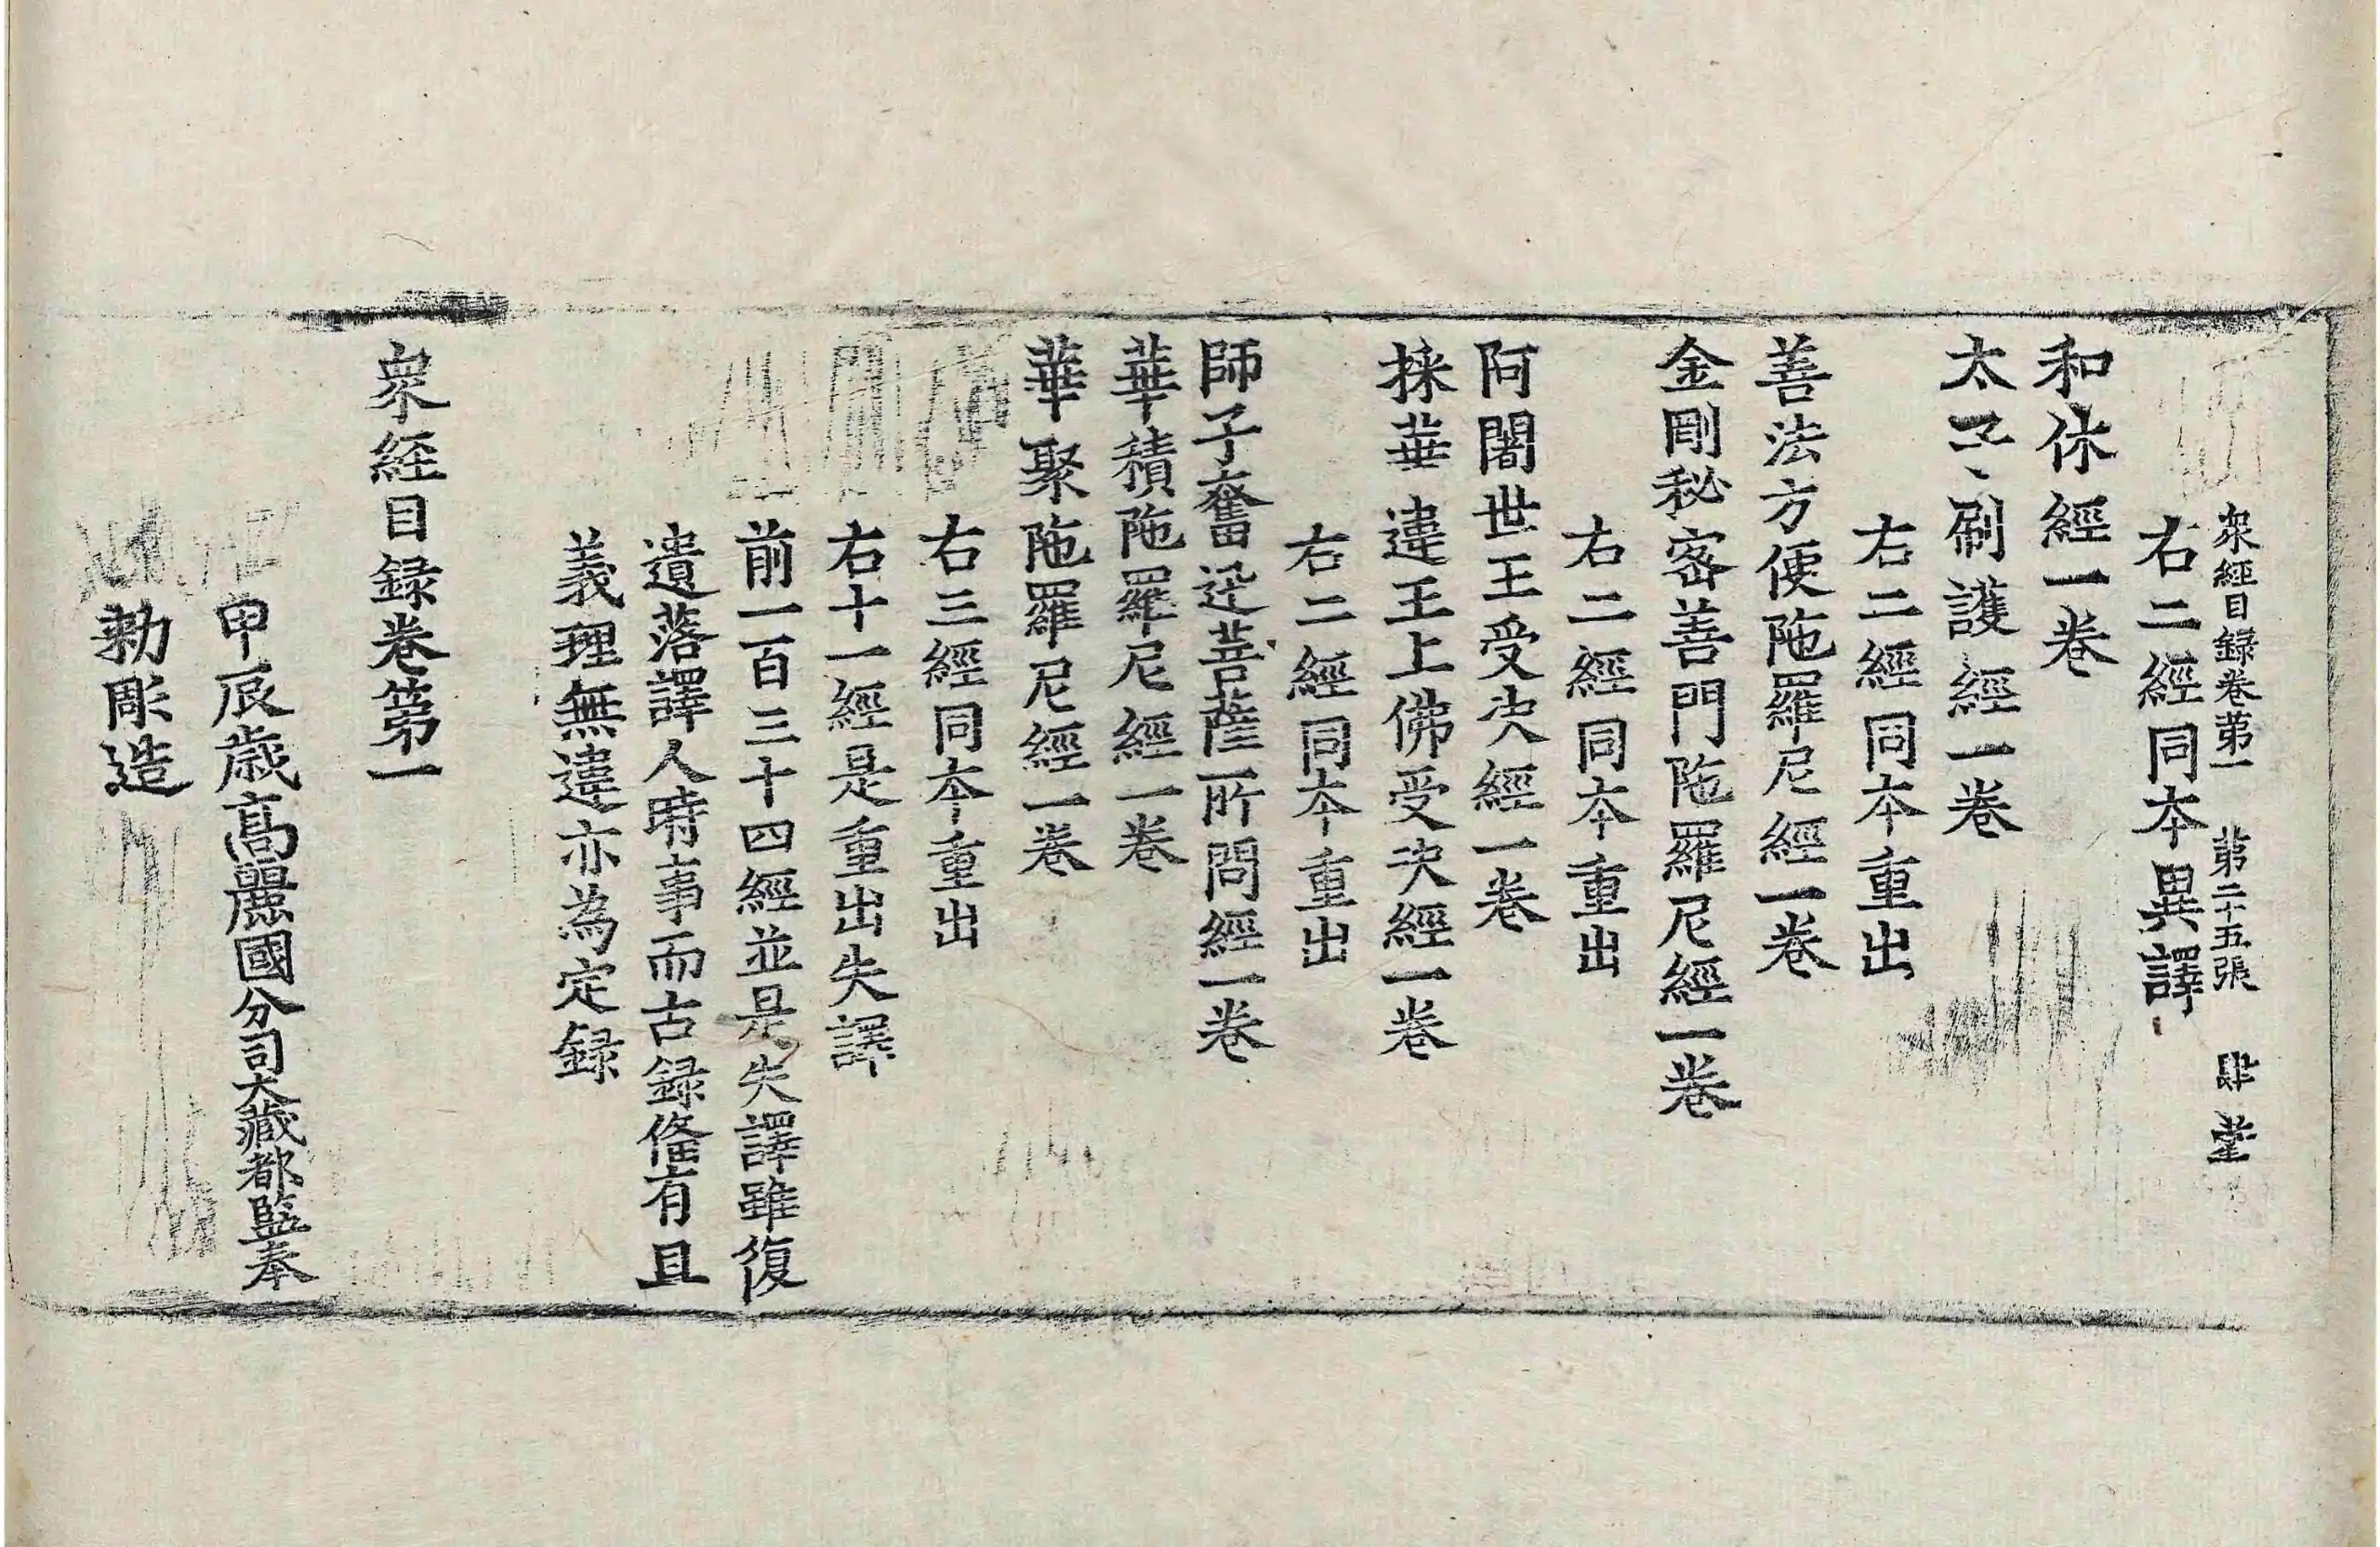 衆經目録卷第一 第二十五張 肆堂
右二經同本異譯
和休經一卷
太子刷護經一卷
右二經同本重出
善法方便陁羅尼經一卷
金剛秘密善門陁羅尼經一卷
右二經同本重出
阿闍世王受决經一卷
採華違王上佛受决經一卷
右二經同本重出
師子奮迅菩薩所問經一卷
華積陁羅尼經一卷
華聚陁羅尼經一卷
右三經同本重出
右十一經是重出失譯
前一百三十四經並是失譯雖復
遺落譯人時事而古録俻有且
義理無違亦為定録
衆経目録卷第一
甲辰歳高麗國分司大藏都監奉
勅彫造